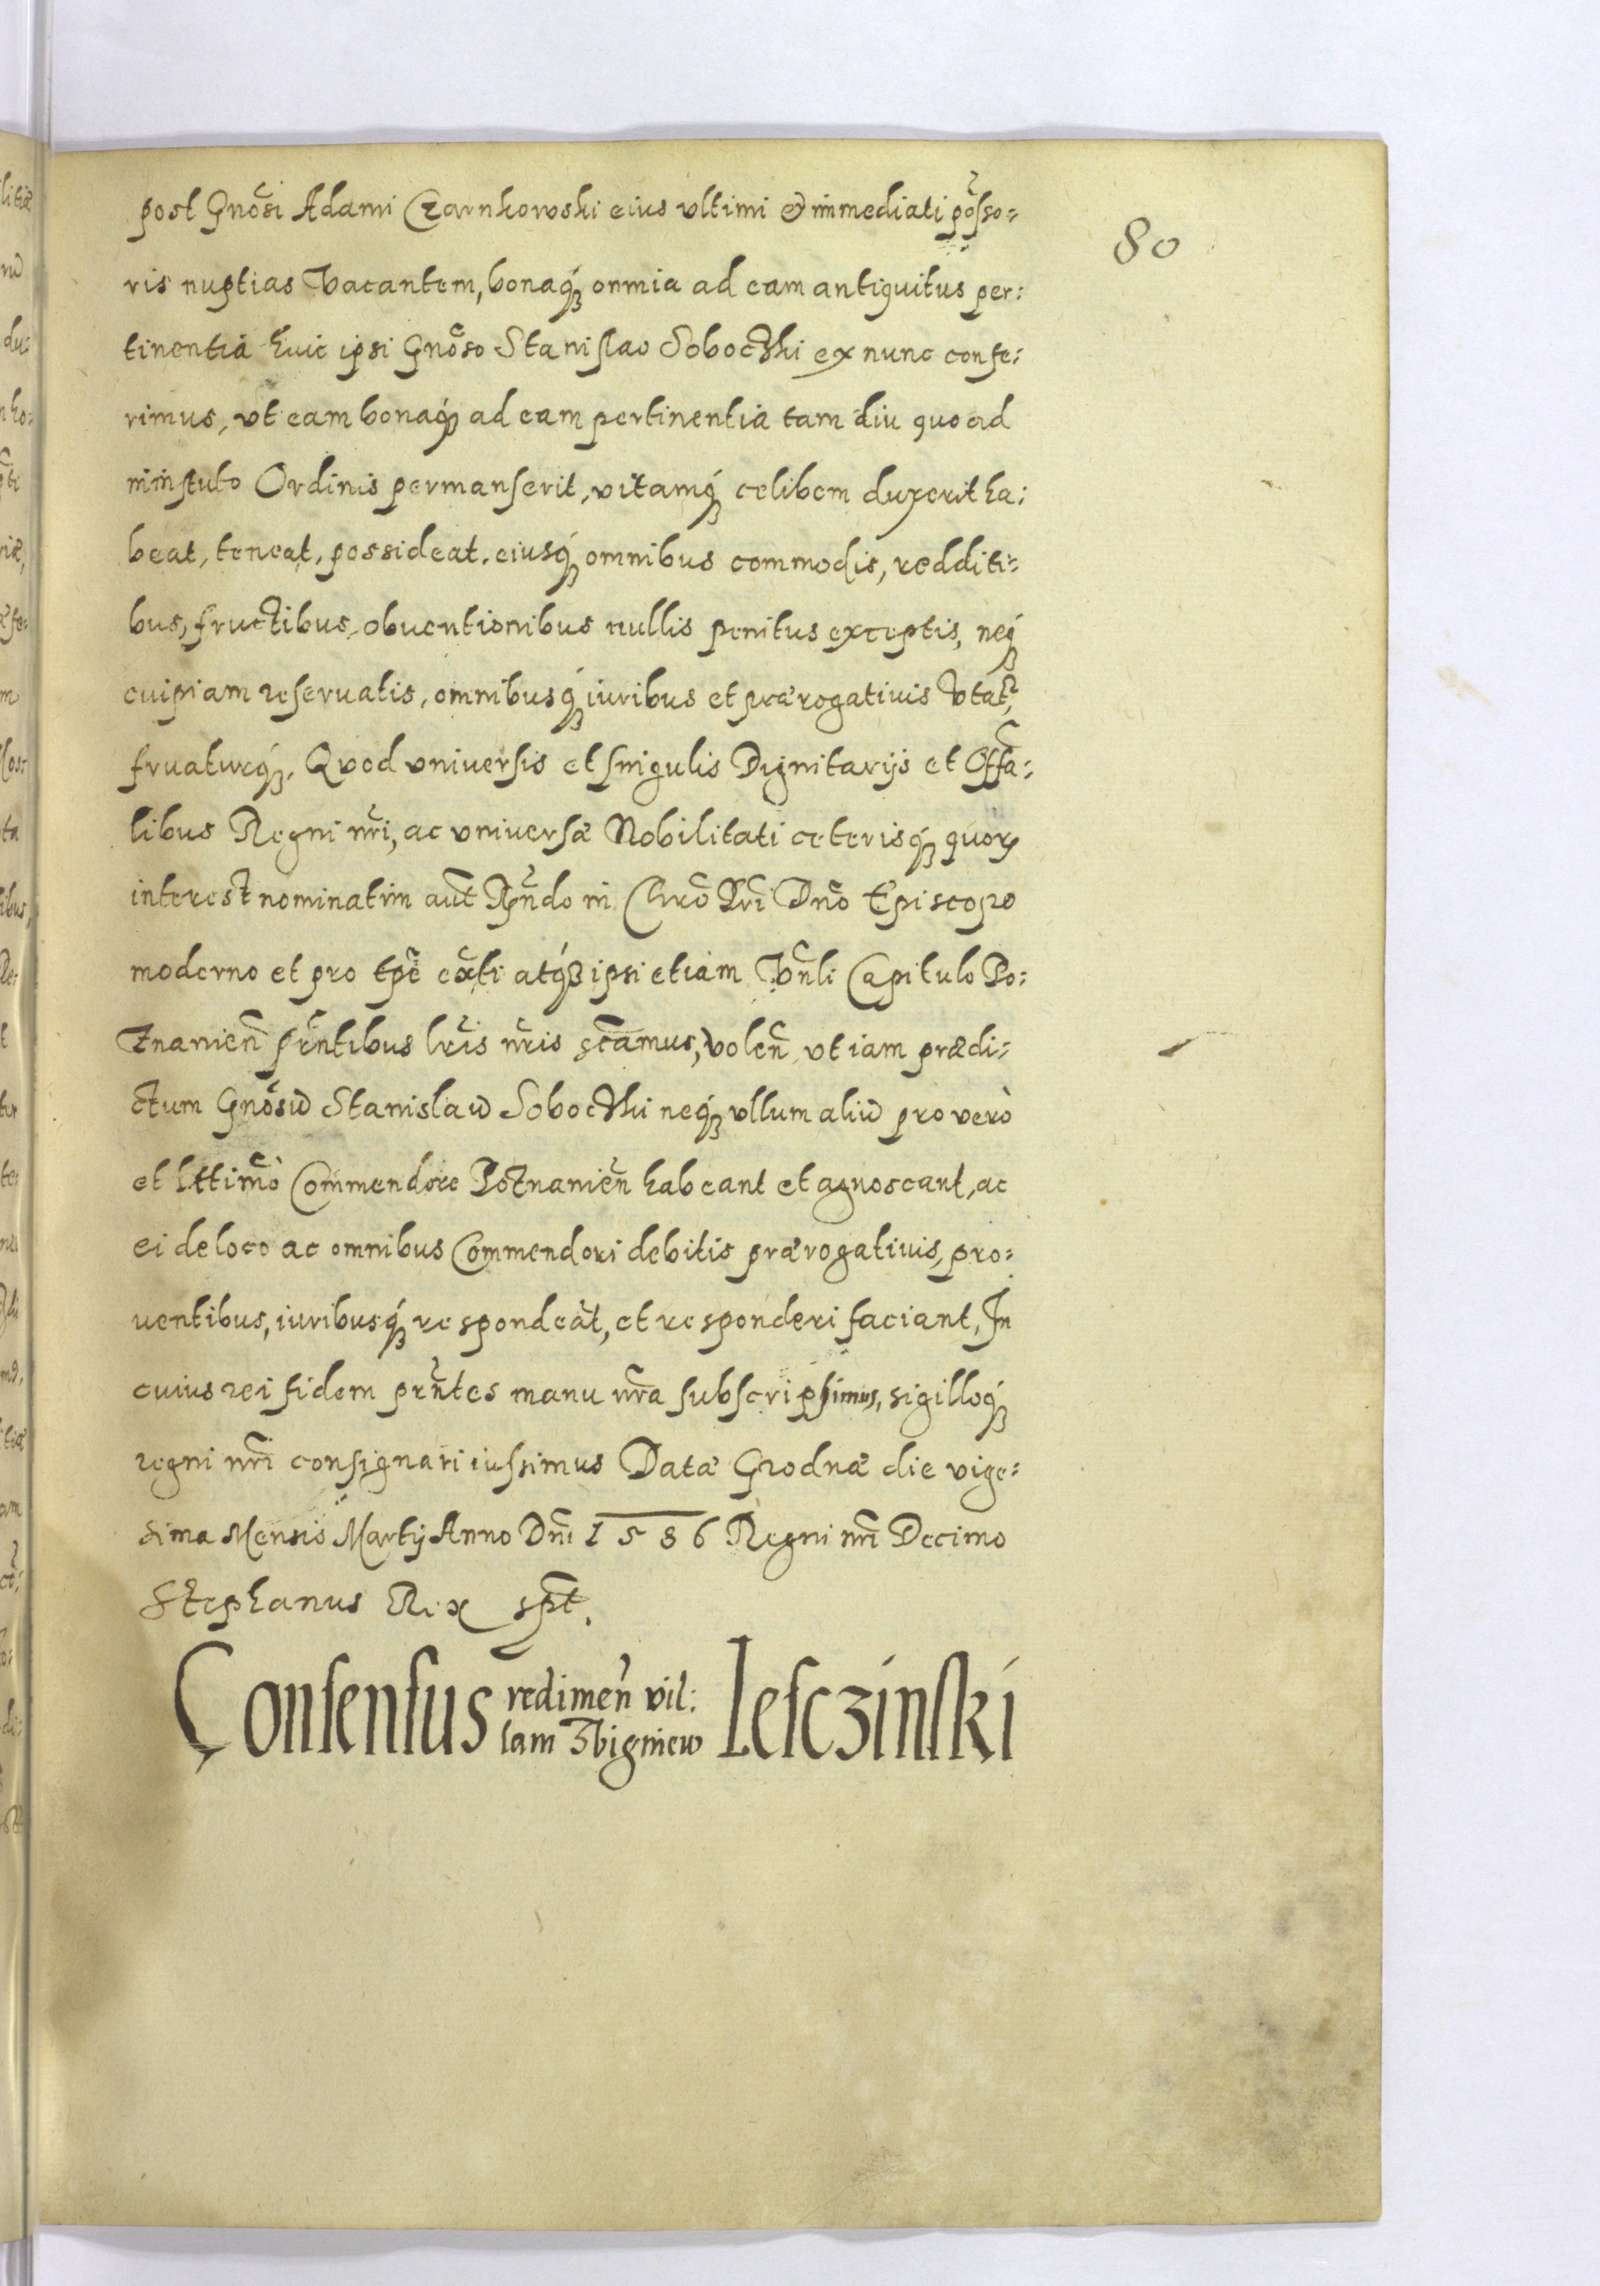 80
post Gnosi Adami Czarnkowski eius vltimi & immediati posso-
ris nuptias vacantem, bonaq omnia ad eam antiquitus per:
tinentia huic ipsi Gnoso Stanislao Sobocki ex nunc confe:
rimus, vt eam bonaq ad eam pertinentia tam diu quoad
in Ordinis permanserit, vitamq celibem duxerit ha:
beat, teneat, possideat, eiusq omnibus commodis, redditi:
bus, fructibus, obuentionibus nullis penitus exceptis, neq
cuipiam reseruatis, omnibusq iuribus et prærogatiuis vtat,
fruaturq, Quod vniuersis et singulis Dignitarijs et Offa:
libus Regni nri, ac vniuersæ Nobilitati ceterisq quor
interest nominatim aut Rndo in Chro Pri Dno Episcopo
moderno et pro tpe exti atq ipsi etiam Vnli Capitulo Po:
znanien pntibus lris nris volen, vt iam prædi:
ctum Gnosu Stanislau Sobocki neq vllum aliu pro vero
et lttimo Commendore Poznanien habeant et agnoscant, ac
ei de loco ac omnibus Commendori debitis prærogatiuis, pro:
uentibus, iuribusq respondeat, et responderi faciant, In
cuius rei fidem prntes manu nra subscripsimus, sigilloq
regni nri consignari iussimus Datæ Grodnæ die vige:
sima Mensis Martij Anno Dni 1586 Regni nri Decimo
Stephanus Rex spt.
Consensus redimen vil:
lam Zbigniew Lesczinski